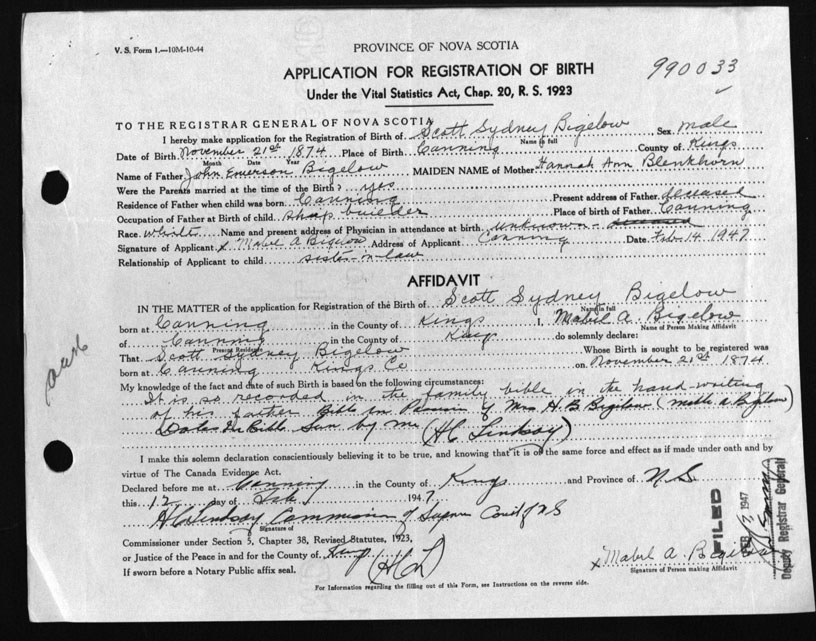 V. S. Form 1.—10M-10-44
PROVINCE OF NOVA SCOTIA
APPLICATION FOR REGISTRATION OF BIRTH
990033
Under the Vital Statistics Act, Chap. 20, R. S. 1923
TO THE REGISTRAR GENERAL OF NOVA SCOTIA
I hereby make application for the Registration of Birth of Scott Sydney Bigelow, Sex male
Name in full
Date of Birth November 21st 1874 Place of Birth Canning County of Kings
Month Date Year
Name of Father John Emerson Bigelow MAIDEN NAME of Mother Hannah Ann Blenkhorn
Were the Parents married at the time of the Birth? yes
Residence of Father when child was born Canning Present address of Father deceased
Occupation of Father at Birth of child ship builder Place of birth of Father Canning
Race white Name and present address of Physician in attendance at birth unknown - deceased
Signature of Applicant x Mabel A Bigelow Address of Applicant Canning Date Feb 14 1947
Relationship of Applicant to child sister-n-law
AFFIDAVIT
IN THE MATTER of the application for Registration of the Birth of Scott Sydney Bigelow
Name in full
born at Canning in the County of Kings I, Mabel A. Bigelow
Name of Person Making Affidavit
of Canning in the County of Kings do solemnly declare:
Present Residence
That Scott Sydney Bigelow Whose Birth is sought to be registered was
born at Canning Kings Co on November 21st 1874
My knowledge of the fact and date of such Birth is based on the following circumstances:
It is so recorded in the family bible in the hand-writing
of his father Bible in Possession of Mrs H B Bigelow (Mable A Bigelow)
Dates in Bible Seen by me (HC Lindsay)
I make this solemn declaration conscientiously believing it to be true, and knowing that it is of the same force and effect as if made under oath and by
virtue of The Canada Evidence Act.
Declared before me at Canning in the County of Kings and Province of N.S.
this 12 day of Feb 1947
HC Lindsay Commissioner of Supreme Court of N S
Signature of
Commissioner under Section 5, Chapter 38, Revised Statutes, 1923,
or Justice of the Peace in and for the County of Kings
(HCL)
If sworn before a Notary Public affix seal.
x Mabel A. Bigelow
Signature of Person making Affidavit
For Information regarding the filling out of this Form, see Instructions on the reverse side.
FILED
FEB 17 1947
Deputy Registrar General